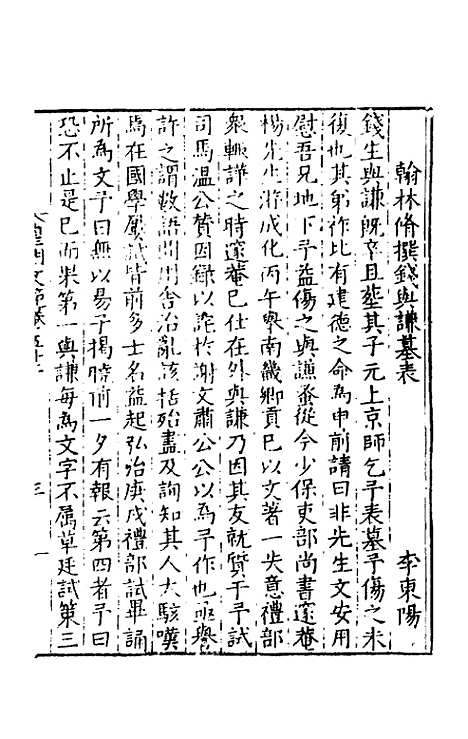 翰林脩撰錢與謙墓表 李東陽
錢生與謙旣卒且塟其子元上京師乞予表墓予傷之未
復也其弟作比有建德之命爲申前請曰非先生文安用
慰吾兄地下予益傷之與謙蚤從今少保吏部尚書邃菴
楊先生游成化丙午舉南畿鄉貢已以文著一失意禮部
衆輒譁之時邃菴已仕在外與謙乃因其友就質于予試
司馬温公賛因録以詫於謝文肅公公以爲予作也亟舉
許之謂數語間用舍治亂該括殆盡及詢知其人大駭嘆
焉在國學屢試皆前多士名益起弘治庚戌禮部試畢誦
所爲文予曰無以易子揭曉前一夕有報云第四者予曰
恐不止是已而果第一與謙每爲文字不屬草廷試第三
皇明文範卷五十